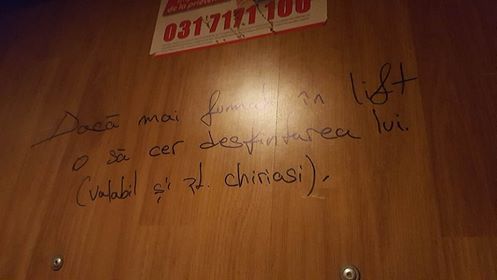 031 7171 100
Dacă mai fumați în lift
o să cer desființarea lui.
(valabil și pt. chiriași).